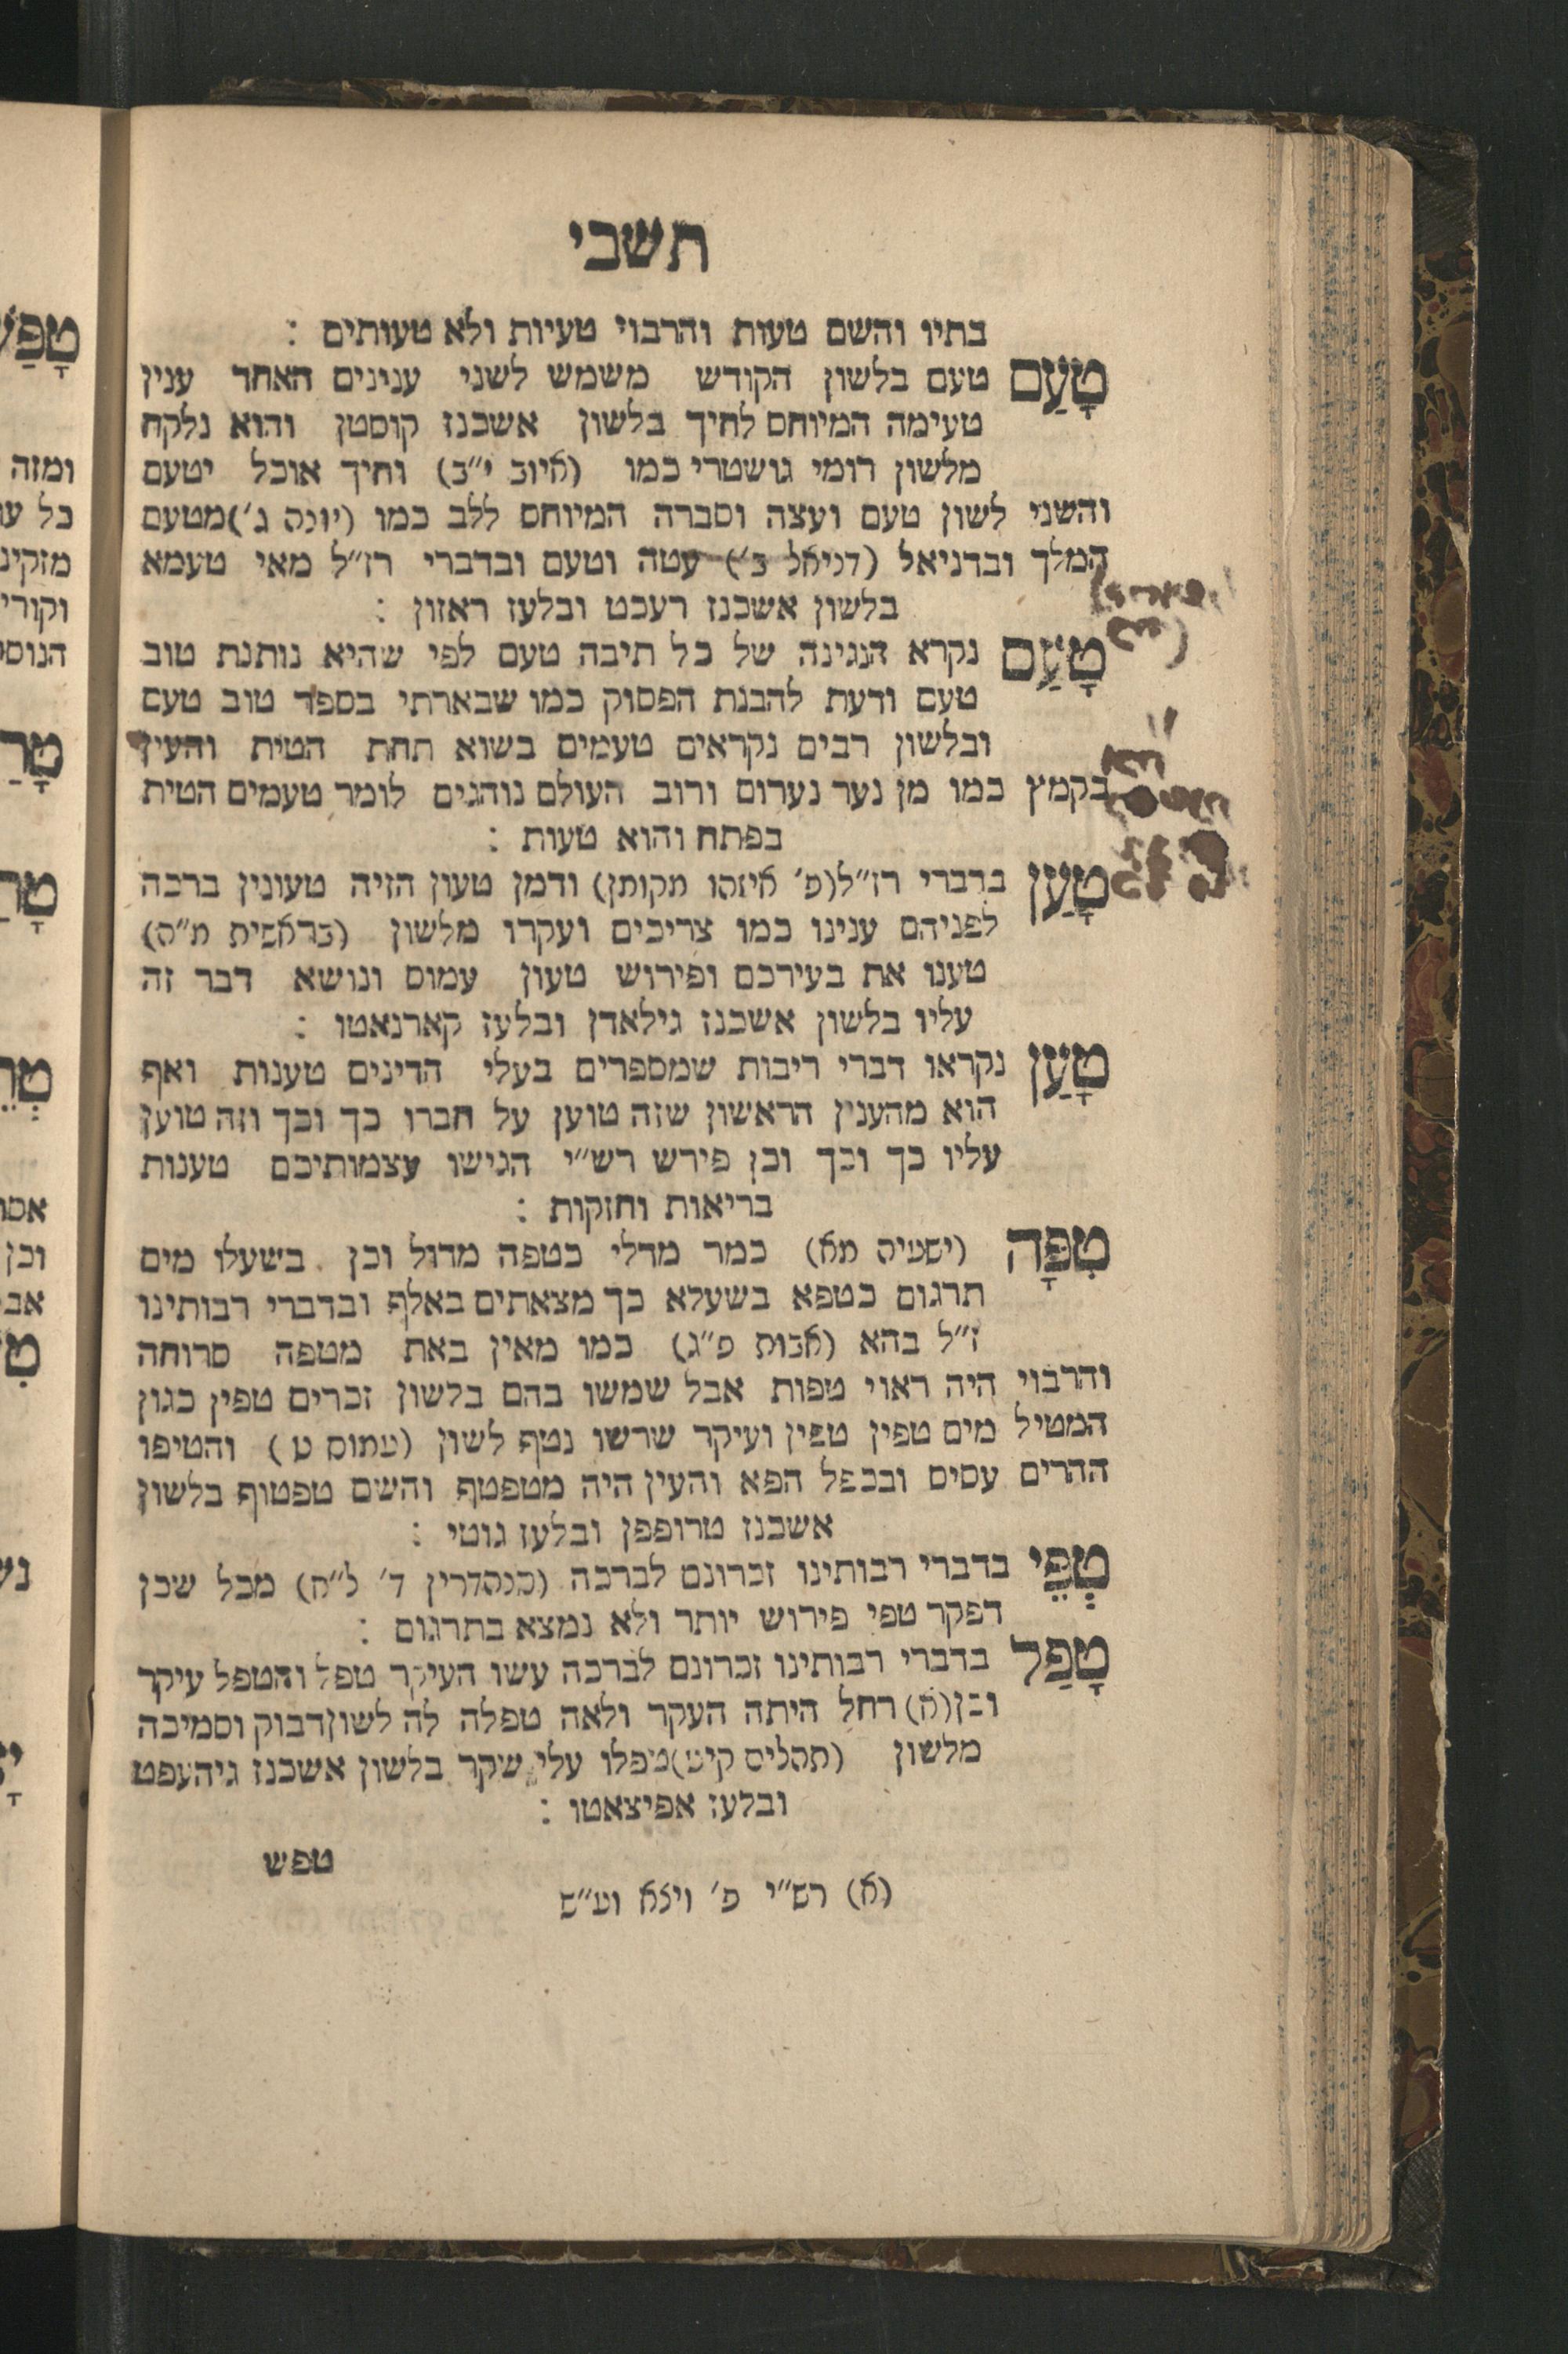 תשבי
בתיו והשם טעות והרבוי טעיות ולא טעותים :
טָעַם טעם בלשון הקודש משמש לשני ענינים האחד ענין
טעימה המיוחס לחיך בלשון אשכנז קוסטן והוא נלקח
מלשון רומי גושטרי כמו (איוב י״ב) וחיך אוכל יטעם
והשני לשון טעם ועצה וסברה המיוחס ללב כמו (יונה ג׳) מטעם
המלך ובדניאל (דניאל ב׳) עטה וטעם ובדברי רז״ל מאי טעמא
בלשון אשכנז רעכט ובלעז ראזון :
טָעַם נקרא הנגינה של כל תיבה טעם לפי שהיא נותנת טוב
טעם ודעת להבנת הפסוק כמו שבארתי בספר טוב טעם
ובלשון רבים נקראים טעמים בשוא תחת הטית והעין
בקמץ כמו מן נער נערום ורוב העולם נוהגים לומר טעמים הטית
בפתח והוא טעות :
טָעַן בדברי רז״ל (פ׳ איזהו מקומן) ודמן טעון הזיה טעונין ברכה
לפניהם ענינו כמו צריכים ועקרו מלשון (בראשית מ״ה)
טענו את בעירכם ופירוש טעון עמוס ונושא דבר זה
עליו בלשון אשכנז גילאדן ובלעז קארנאטו :
טָעַן נקראו דברי ריבות שמספרים בעלי הדינים טענות ואף
הוא מהענין הראשון שזה טוען על חברו כך וכך וזה טוען
עליו כך וכך וכן פירש רש״י הגישו עצמותיכם טענות
בריאות וחזקות :
טִפָּה (ישעיה מא) כמר מדלי כטפה מדול וכן בשעלו מים
תרגום כטפא בשעלא כך מצאתים באלף ובדברי רבותינו
ז״ל בהא (אבות פ״ג) כמו מאין באת מטפה סרוחה
והרבוי היה ראוי טפות אבל שמשו בהם בלשון זכרים טפין כגון
המטיל מים טפין טפין ועיקר שרשו נטף לשון (עמוס ט) והטיפו
ההרים עסיס ובכפל הפא והעין היה מטפטף והשם טפטוף בלשון
אשכנז טרופפן ובלעז גוטי :
טְפֵי בדברי רבותינו זכרונם לברכה (סנהדרין ד׳ ל״ח) מכל שכן
דפקר טפי פירוש יותר ולא נמצא בתרגום :
טָפַל בדברי רבותינו זכרונם לברכה עשו העיקר טפל והטפל עיקר
וכן (א) רחל היתה העקר ולאה טפלה לה לשון דבוק וסמיכה
מלשון (תהלים קיט) טפלו עלי שקר בלשון אשכנז גיהעפט
ובלעז אפיצאטו :
טפש
(א) רש״י פ׳ ויצא וע״ש